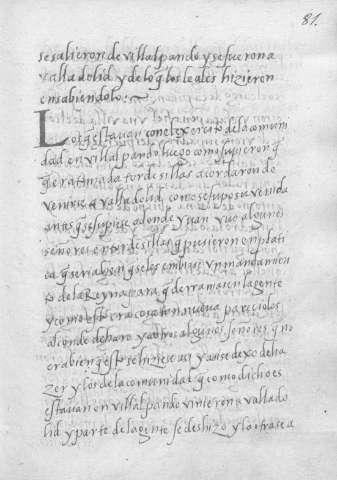 81.
se salieron de villalpando y se fueron a
valladolid y de lo q̃ los leales hizieron
en sabiendolo.
Los q̃ estauan con el exercito de la comuni
dad en villalpando luego como supieron q̃
q̃ era tomada tordesillas acordaron de
venirse a valladolid como se supo su venida
antes q̃ se supiese a donde yuan vuo algunos
señores en tordesillas q̃ pusieron en plati
ca q̃ seria bien q̃ se les embiase vn mandamien
to de la Reyna para q̃ derramasen la gente
y como esto era cosa ton nueua parecioles
al conde de haro y a otros algunos señores q̃ no
era bien q̃ esto se hiziese asi y ansi se dexo de ha
zer y los de la comunidad q̃ como dicho es
estauan en villalpando vinieron a vallado
lid y parte de la gente se deshizo y la otra se a